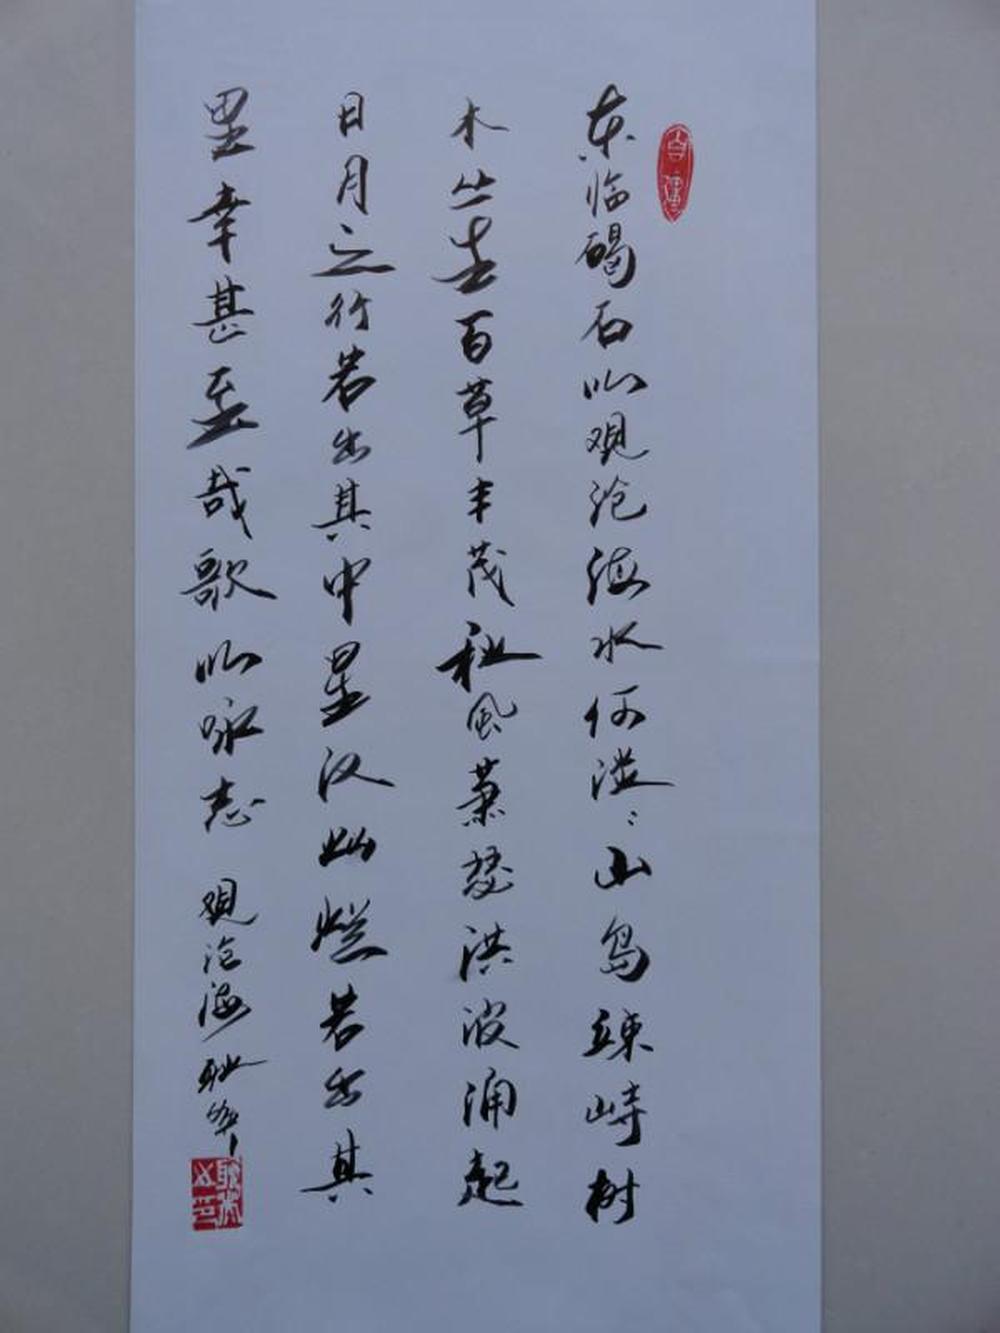 东临碣石以观沧海水何澹〻山岛竦峙树
木丛生百草丰茂秋风萧瑟洪波涌起
日月之行若出其中星汉灿烂若出其
里幸甚至哉歌以咏志 观沧海 耿华